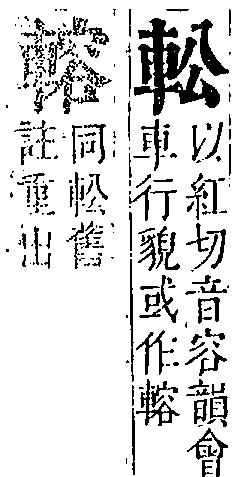 䡆
以紅切音容韻會
車行貌或作䡥
䡥
同䡆舊
註重出